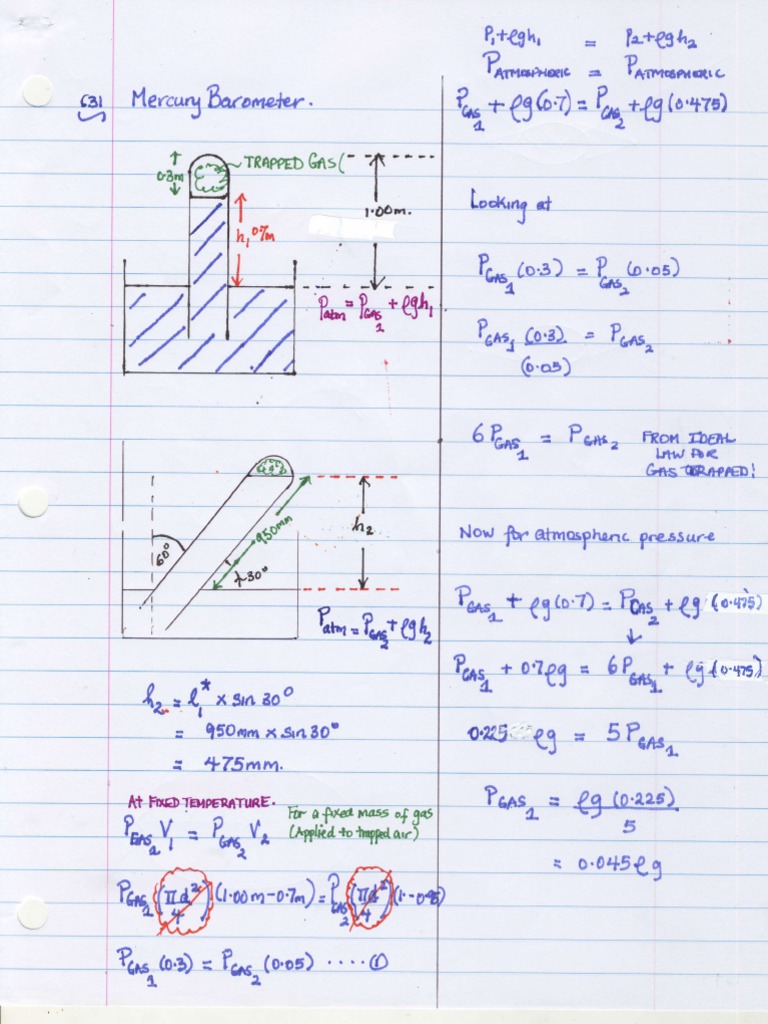 631 Mercury Barometer.
0.3m
TRAPPED GAS(
1.00m.
h₁ 0.7m
Patm = PGAS1 + ρgh₁
60°
950mm
30°
h₂
Patm = PGAS2 + ρgh₂
h₂ = l₁* × sin 30°
= 950mm × sin 30°
= 475mm.
AT FIXED TEMPERATURE.
For a fixed mass of gas
(Applied to trapped air)
PGAS1 V₁ = PGAS2 V₂
PGAS1 (πd²/4) (1.00m-0.7m) = PGAS2 (πd²/4) (1-0.95)
PGAS1 (0.3) = PGAS2 (0.05) ..... ①
P₁+ρgh₁ = P₂+ρgh₂
PATMOSPHERIC = PATMOSPHERIC
PGAS1 + ρg(0.7) = PGAS2 + ρg(0.475)
Looking at
PGAS1 (0.3) = PGAS2 (0.05)
PGAS1 (0.3)/(0.05) = PGAS2
6PGAS1 = PGAS2
FROM IDEAL
LAW FOR
GAS TRAPPED!
Now for atmospheric pressure
PGAS1 + ρg(0.7) = PGAS2 + ρg(0.475)
PGAS1 + 0.7ρg = 6PGAS1 + ρg(0.475)
0.225 ρg = 5PGAS1
PGAS1 = ρg(0.225)/5
= 0.045ρg